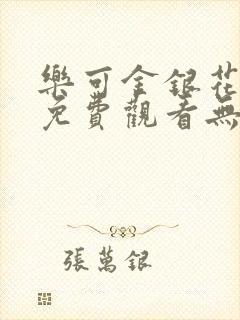 樂可金銀花
免費觀看無
張萬銀